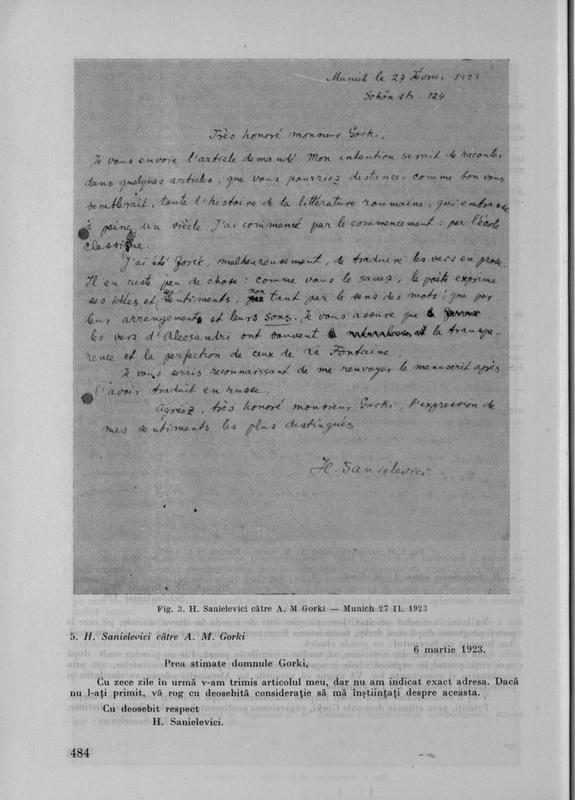 Munich le 27 Févr. 1923
Schön str. 124
Très honoré monsieur Gorki,
Je vous envoie l'article demandé. Mon intention serait de raconter
dans quelques articles, que vous pourriez distancer comme bon vous
semblerait, toute l'histoire de la littérature roumaine, qui embrasse
à peine un siècle. J'ai commencé par le commencement: par l'école
classique.
J'ai été forcé, malheureusement, de traduire les vers en prose.
Il en reste peu de chose: comme vous le savez, le poète exprime
ses idées et sentiments, non tant par le sens des mots, que par
leur arrangements et leurs sons. Je vous assure que
les vers d'Alecsandri ont souvent la transpa-
rence et la perfection de ceux de La Fontaine.
Je vous serais reconnaissant de me renvoyer le manuscrit après
l'avoir traduit en russe.
Agréez, très honoré monsieur Gorki, l'expression de
mes sentiments les plus distingués
H. Sanielevici
Fig. 3. H. Sanielevici către A. M Gorki — Munich 27 II. 1923
5. H. Sanielevici către A. M. Gorki
6 martie 1923.
Prea stimate domnule Gorki,
Cu zece zile în urmă v-am trimis articolul meu, dar nu am indicat exact adresa. Dacă
nu l-ați primit, vă rog cu deosebită considerație să mă înștiințați despre aceasta.
Cu deosebit respect
H. Sanielevici.
484